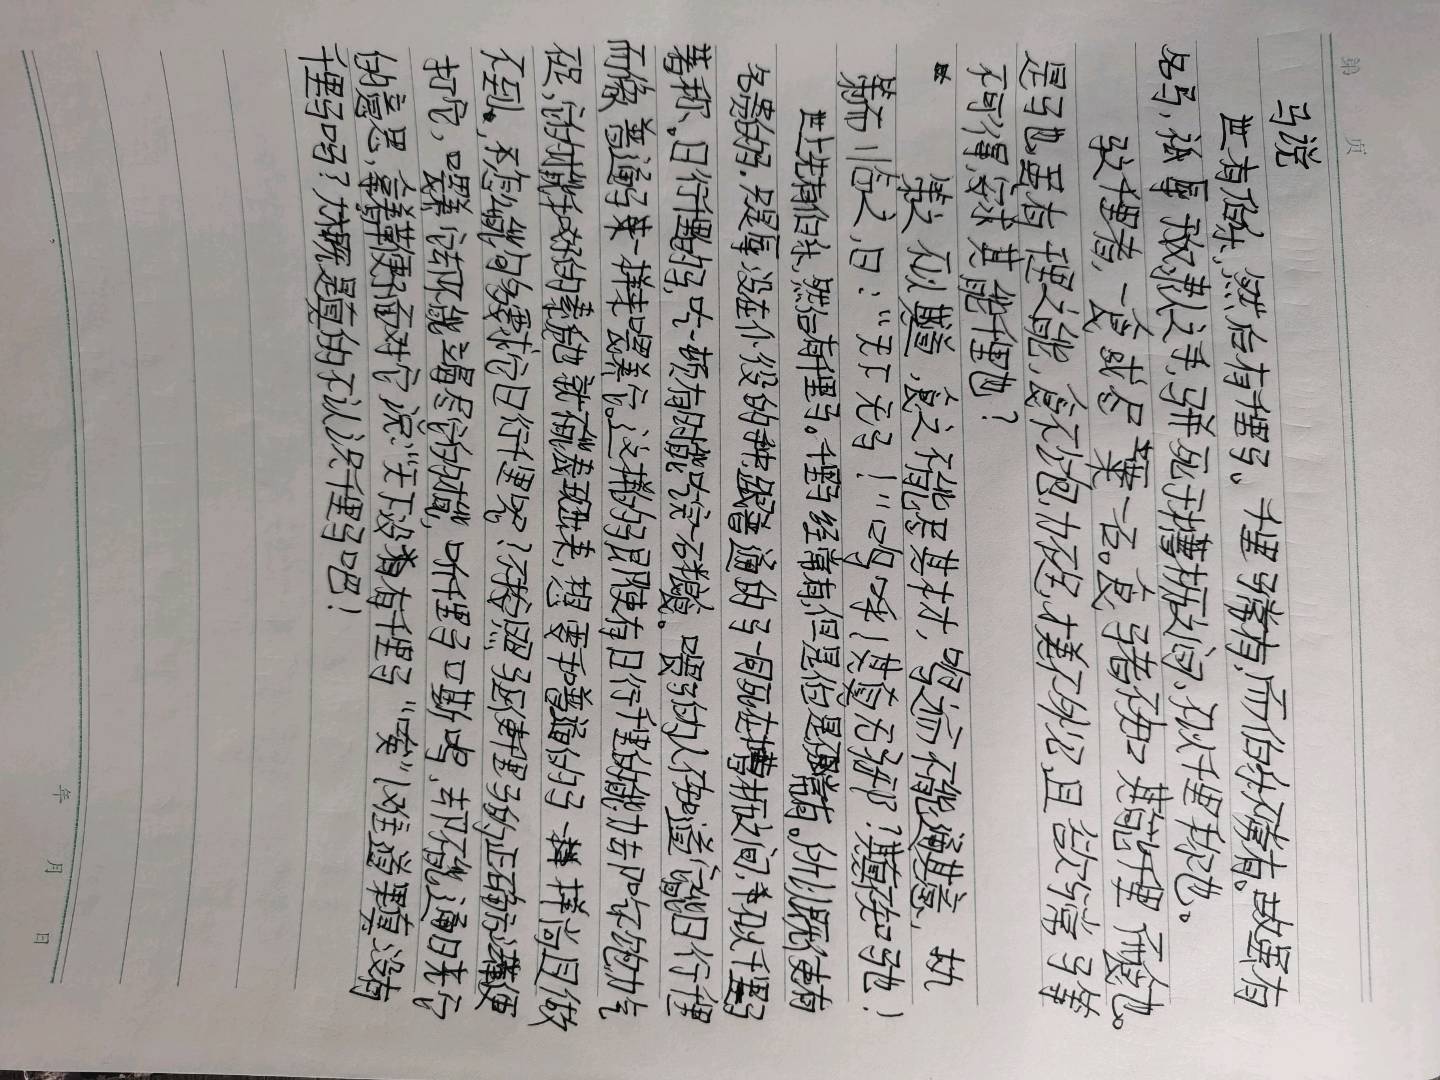 第 页
马说
世有伯乐,然后有千里马。千里马常有,而伯乐不常有。故虽有
名马,祇辱于奴隶人之手,骈死于槽枥之间,不以千里称也。
马之千里者,一食或尽粟一石。食马者不知其能千里而食也。
是马也,虽有千里之能,食不饱,力不足,才美不外见,且欲与常马等
不可得,安求其能千里也?
策之不以其道,食之不能尽其材,鸣之而不能通其意,执
策而临之,曰:“天下无马!”呜呼!其真无马邪?其真不知马也!
世上先有伯乐,然后有千里马。千里马经常有,但是伯乐是不常有。所以即使有
名贵的马.只是辱没在仆役的种,跟普通的马一同死在槽枥之间,不以千里马
著称。日行千里的马,吃一顿有时能吃完一石粮食。喂马的人不知道它能日行千里
而像普通马来一样来喂养它。这样的马即使有日行千里的能力去吃不饱,力气
不足,它的才能和好的素能也就不能表现出来,想要和普通的马一样尚且做
不到,不怎么能够要求它日行千里呢?不按照驱使千里马的正确方法驱使
打它,喂养它却不能竭尽它的才能,听千里马嘶鸣,却不能通晓它
的意思,拿着鞭子面对它说:“天下没有千里马 “哎”!难道果真没有
千里马吗?大概是真的不认识千里马吧!
年 月 日